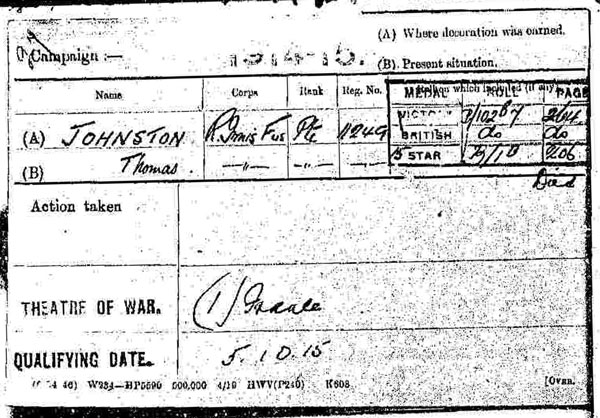 (A) Where decoration was earned.
Campaign :— 1914-15.
(B). Present situation.
Name Corps Rank Reg. No. Roll on which included (if any)
MEDAL ROLL PAGE
VICTORY 264
(A) JOHNSTON R. Innis Fus Pte 11249 BRITISH do do
(B) Thomas. —"— —"— 15 STAR 206
Died
Action taken
THEATRE OF WAR. (1) France
QUALIFYING DATE. 5.10.15
46) W234—HP5590 500,000 4/19 HWV(P240) K608 [OVER.